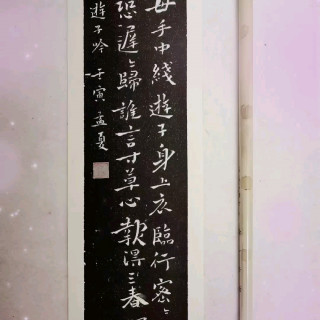 母手中綫遊子身上衣臨行密〻
恐遲〻歸誰言寸草心報得三春
遊子吟 壬寅孟夏